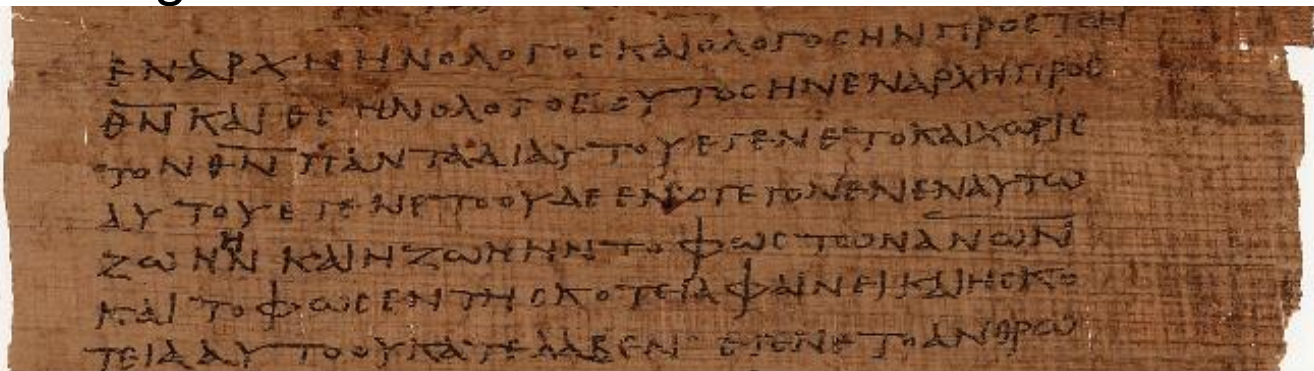 ΕΝΑΡΧΗΗΝΟΛΟΓΟϹΚΑΙΟΛΟΓΟϹΗΝΠΡΟϹΤΟΝ
Θ̅Ν̅ΚΑΙΘ̅Ϲ̅ΗΝΟΛΟΓΟϹΟΥΤΟϹΗΝΕΝΑΡΧΗΠΡΟϹ
ΤΟΝΘ̅Ν̅ΠΑΝΤΑΔΙΑΥΤΟΥΕΓΕΝΕΤΟΚΑΙΧΩΡΙϹ
ΑΥΤΟΥΕΓΕΝΕΤΟΟΥΔΕΕΝΟΓΕΓΟΝΕΝΕΝΑΥΤΩ
ΖΩΗΗΝΚΑΙΗΖΩΗΗΝΤΟΦΩϹΤΩΝΑ̅Ν̅Ω̅Ν̅
ΚΑΙΤΟΦΩϹΕΝΤΗϹΚΟΤΕΙΑΦΑΙΝΕΙΚΑΙΗϹΚΟ
ΤΕΙΑΑΥΤΟΟΥΚΑΤΕΛΑΒΕΝ ΕΓΕΝΕΤΟΑΝΘΡΩ